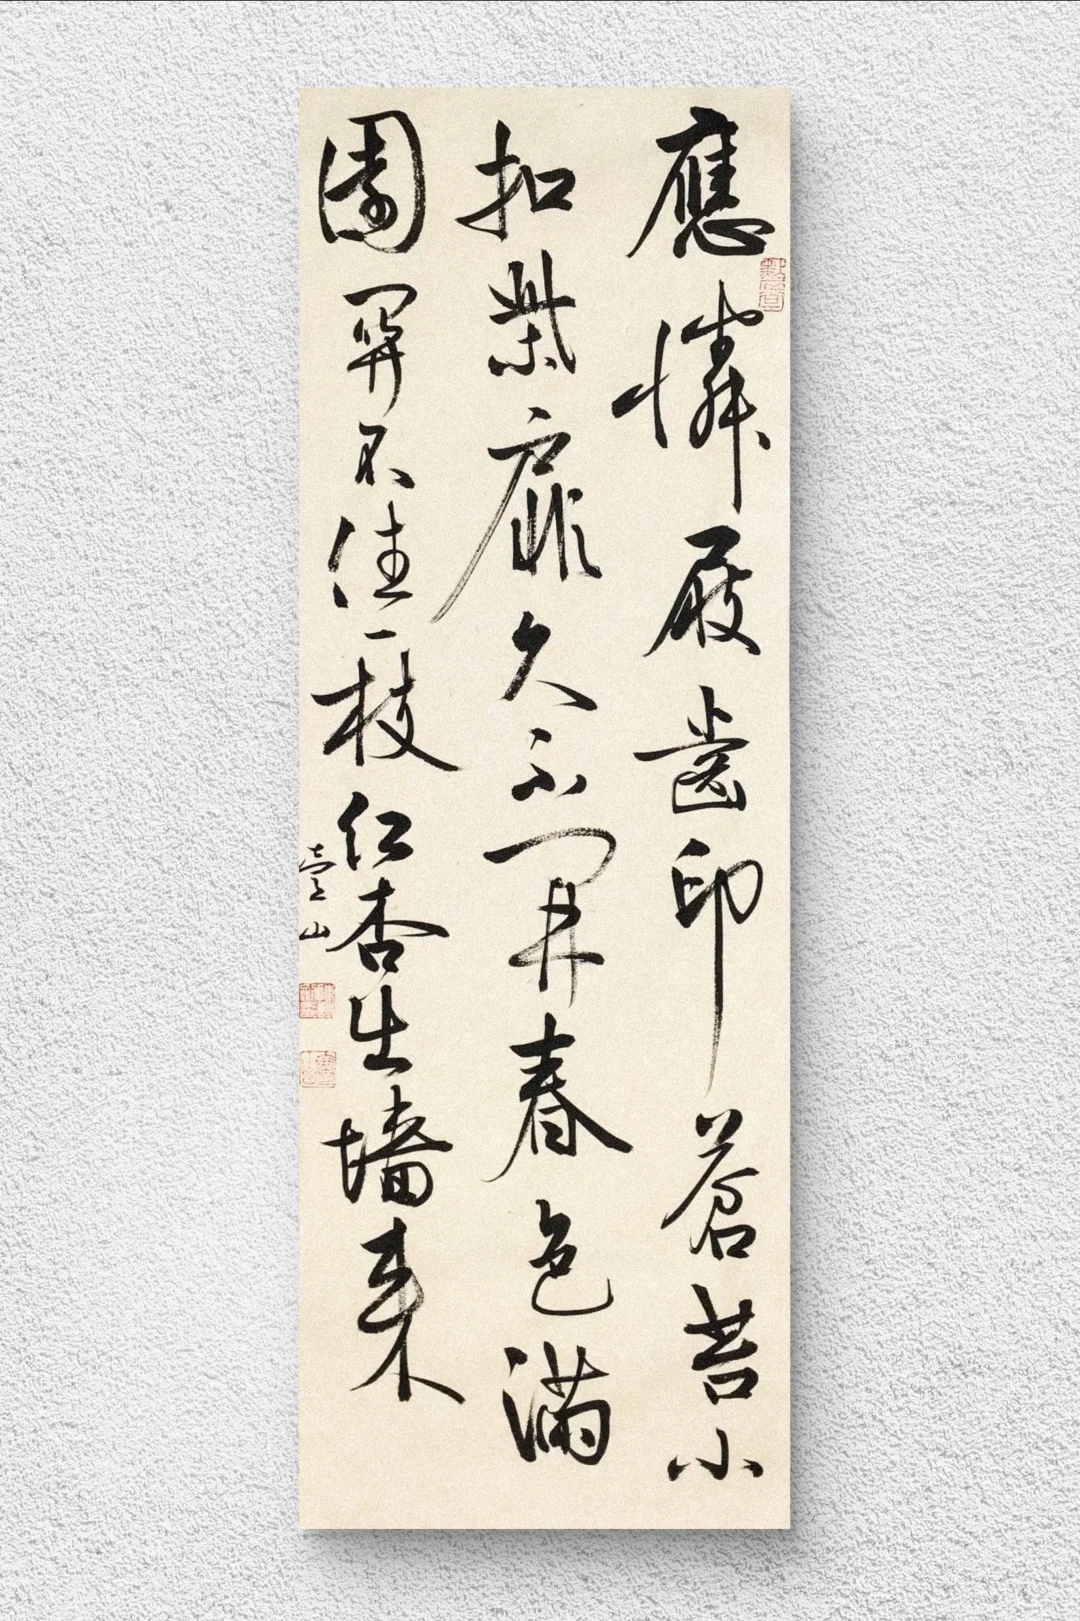 應憐屐齒印蒼苔小
扣柴扉久不開春色滿
園關不住一枝紅杏出墻來